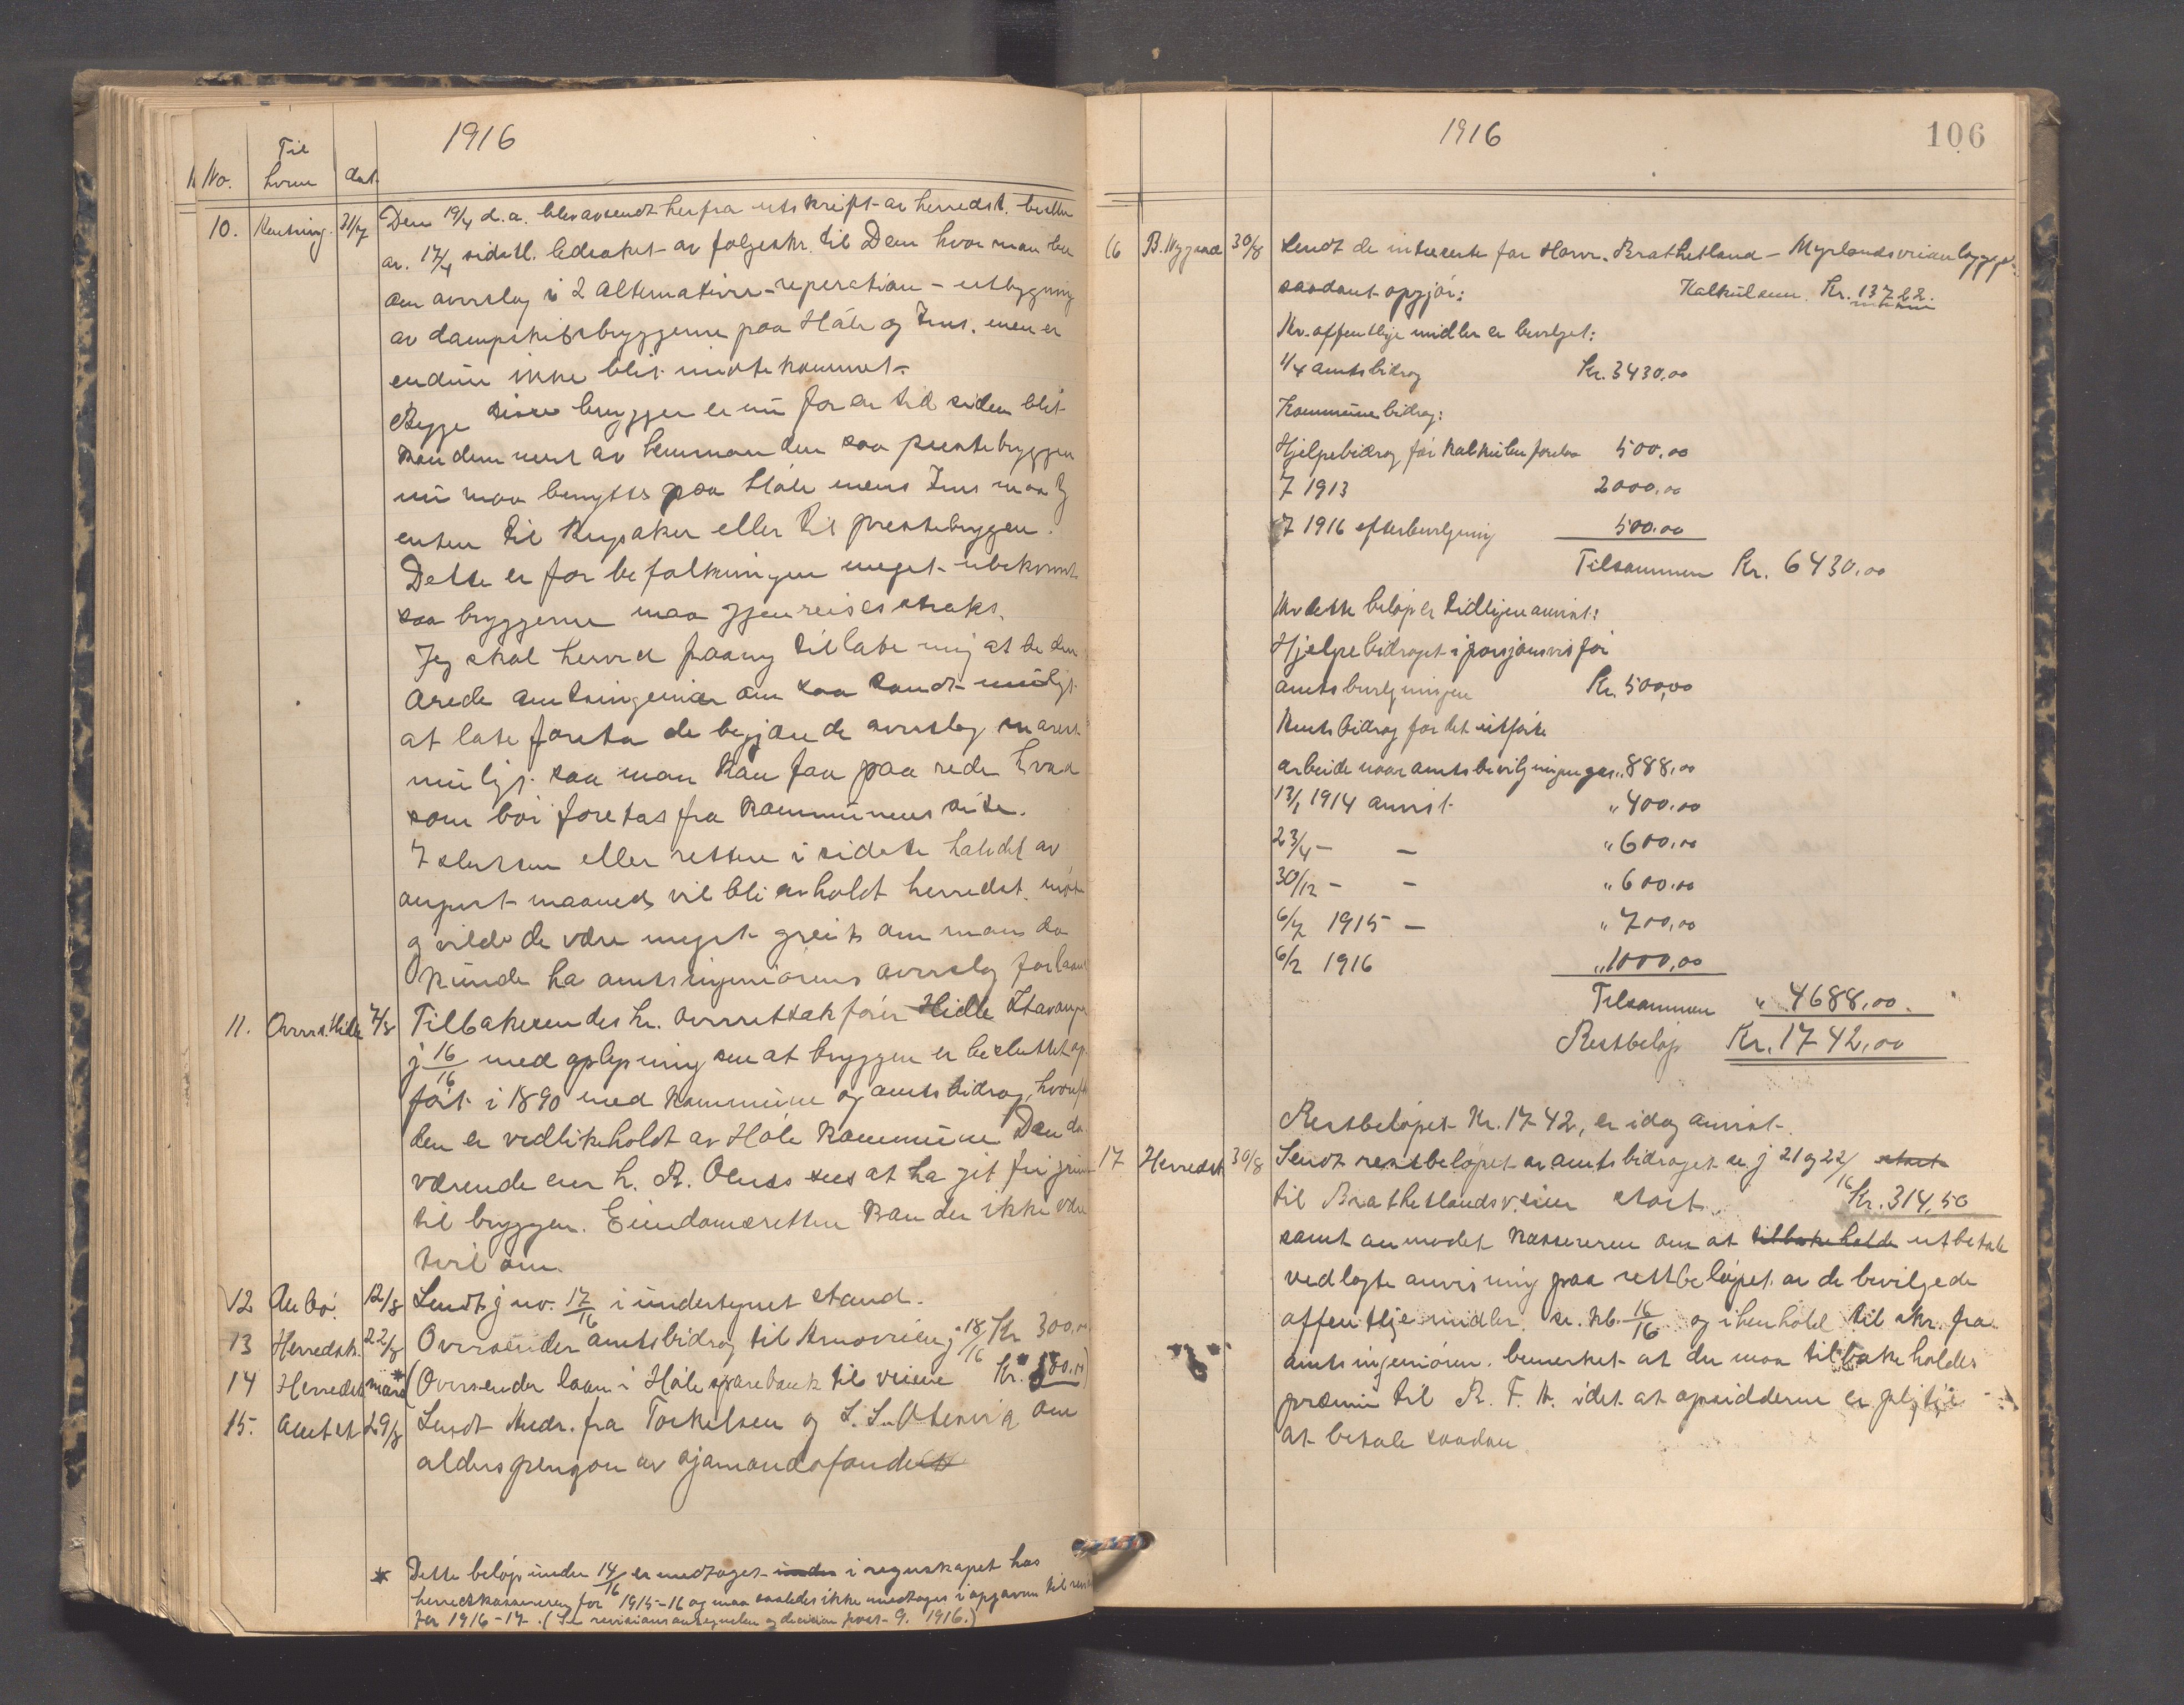 1916
Til
No. hvem dat.
10. 31/7 Dem 19/4 d.a. blev avsendt herfra utskrift av herredst. beslu
av 17/4 sidstl. ledsaket av følgeskr. til Dem hvor man ber
om overslag i 2 alternativer - reperation - utbygning
av dampskibsbryggerne paa Høle og Ims, men er
endnu ikke blit imøtekommet.
Begge disse brygger er nu for en tid siden blit
kondemnert av lensmanden saa prestebryggen
nu maa benyttes paa Høle mens Ims maa ty
enten til eller til prestebryggen.
Dette er for befolkningen meget ubekvemt
saa bryggerne maa gjenreises straks.
Jeg skal herved paany tillate mig at be den
ærede amtsingeniør om saa sandt muligt
at late foreta de begjærede overslag snarest
muligt saa man kan faa paa rede hvad
som bør foretas fra kommunens side.
I slutten eller rettere i sidste halvdel av
august maaned vil bli avholdt herredst. møte
og vilde de være meget greit om man da
kunde ha amtsingeniørens overslag
11. Overrs. Hille 7/8 Tilbakesendes hr. overretssakfører Hille Stavanger
j 16/16 med oplysning om at bryggen er besluttet op
ført i 1890 med kommune og amtsbidrag,
den er vedlikeholdt av Høle kommune Den da
værende eier h. R. Oluss sees at ha git fri grund
til bryggen. Eiendomsretten kan der ikke være
tvil om.
12 12/8 Sendt j no. 17/16 i undertegnet stand.
13 Herredsk. 22/8 Oversender amtsbidrag til j 18/16 Kr 300,00
14 Herredsk mars* (Oversender laan i Høle sparebank til veiene Kr.
15. Amtet 29/8 Sendt Andr. fra Torkelsen og L. om
alderspengon av sjømandsfondet
* Dette beløp under 14/16 er medtaget under i regnskapet hos
herredskassereren for 1915-16 og maa saaledes ikke medtages i opgaven til
for 1916-17. (Se revisionsantegnelse og decision post 9. 1916.)
1916
106
16 B. Nygaard 30/8 Sendt de interesserte for Brathetland - Myrlandsveien
saadant opgjør: Kalkulsum. Kr. 13722.
Av offentlige midler er bevilget:
1/4 amtsbidrag Kr. 3430,00
Kommunebidrag:
Hjelpebidrag før kalkulen forelaa 500,00
I 1913 2000,00
I 1916 efterbevilgning 500,00
Tilsammen Kr. 6430,00
Av dette beløp er tidligere anvist:
Hjelpebidraget før
amtsbevilgningen Kr. 500,00
Amtsbidrag for det utførte
arbeide naar amtsbevilgningen gas „ 888,00
13/1 1914 anvist „ 400,00
23/4 - - „ 600,00
30/12 - - „ 600,00
6/7 1915 - „ 700,00
6/2 1916 „ 1000,00
Tilsammen „ 4688,00
Restbeløp Kr. 1742,00
Restbeløpet Kr. 1742, er idag anvist.
17 Herredsk 30/8 Sendt restbeløpet av amtsbidraget se j 21 og 22/16 stort
til Brathetlandsveien stort Kr. 314,50
samt anmodet kassereren om at tilbakeholde utbetale
vedlagte anvisning paa restbeløpet av de bevilgede
offentlige midler, se. kb. 16/16 og i henhold til skr. fra
amtsingeniøren bemerket at der maa tilbakeholdes
præmie til R. F. A. idet at opsidderne er pligtig
at betale saadan.